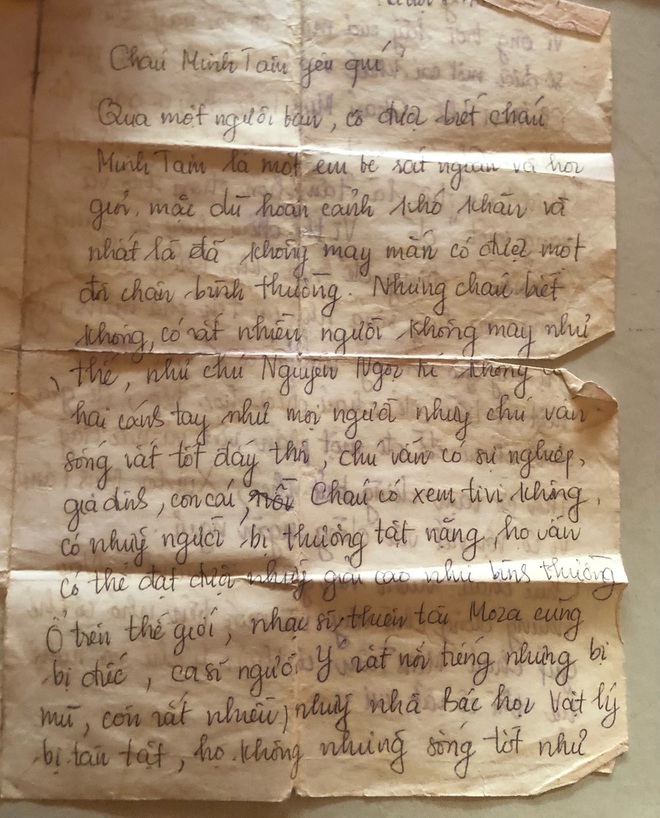 Cháu Minh Tâm yêu quí
Qua một người bạn, cô được biết cháu
Minh Tâm là một em bé rất ngoan và học
giỏi, mặc dù hoàn cảnh khó khăn và
nhất là đã không may mắn có được một
đôi chân bình thường. Nhưng cháu biết
không, có rất nhiều người không may như
thế, như chú Nguyễn Ngọc Kí không có
hai cánh tay như mọi người nhưng chú vẫn
sống rất tốt đấy thôi, chú vẫn có sự nghiệp,
gia đình, con cái, rồi Cháu có xem tivi không,
có những người bị thương tật nặng, họ vẫn
có thể đạt được những giải cao như bình thường
Ở trên thế giới, nhạc sĩ thiên tài Moza cũng
bị điếc, ca sĩ người Ý rất nổi tiếng nhưng bị
mù, còn rất nhiều, những nhà Bác học Vật lý
bị tàn tật, họ không những sống tốt như